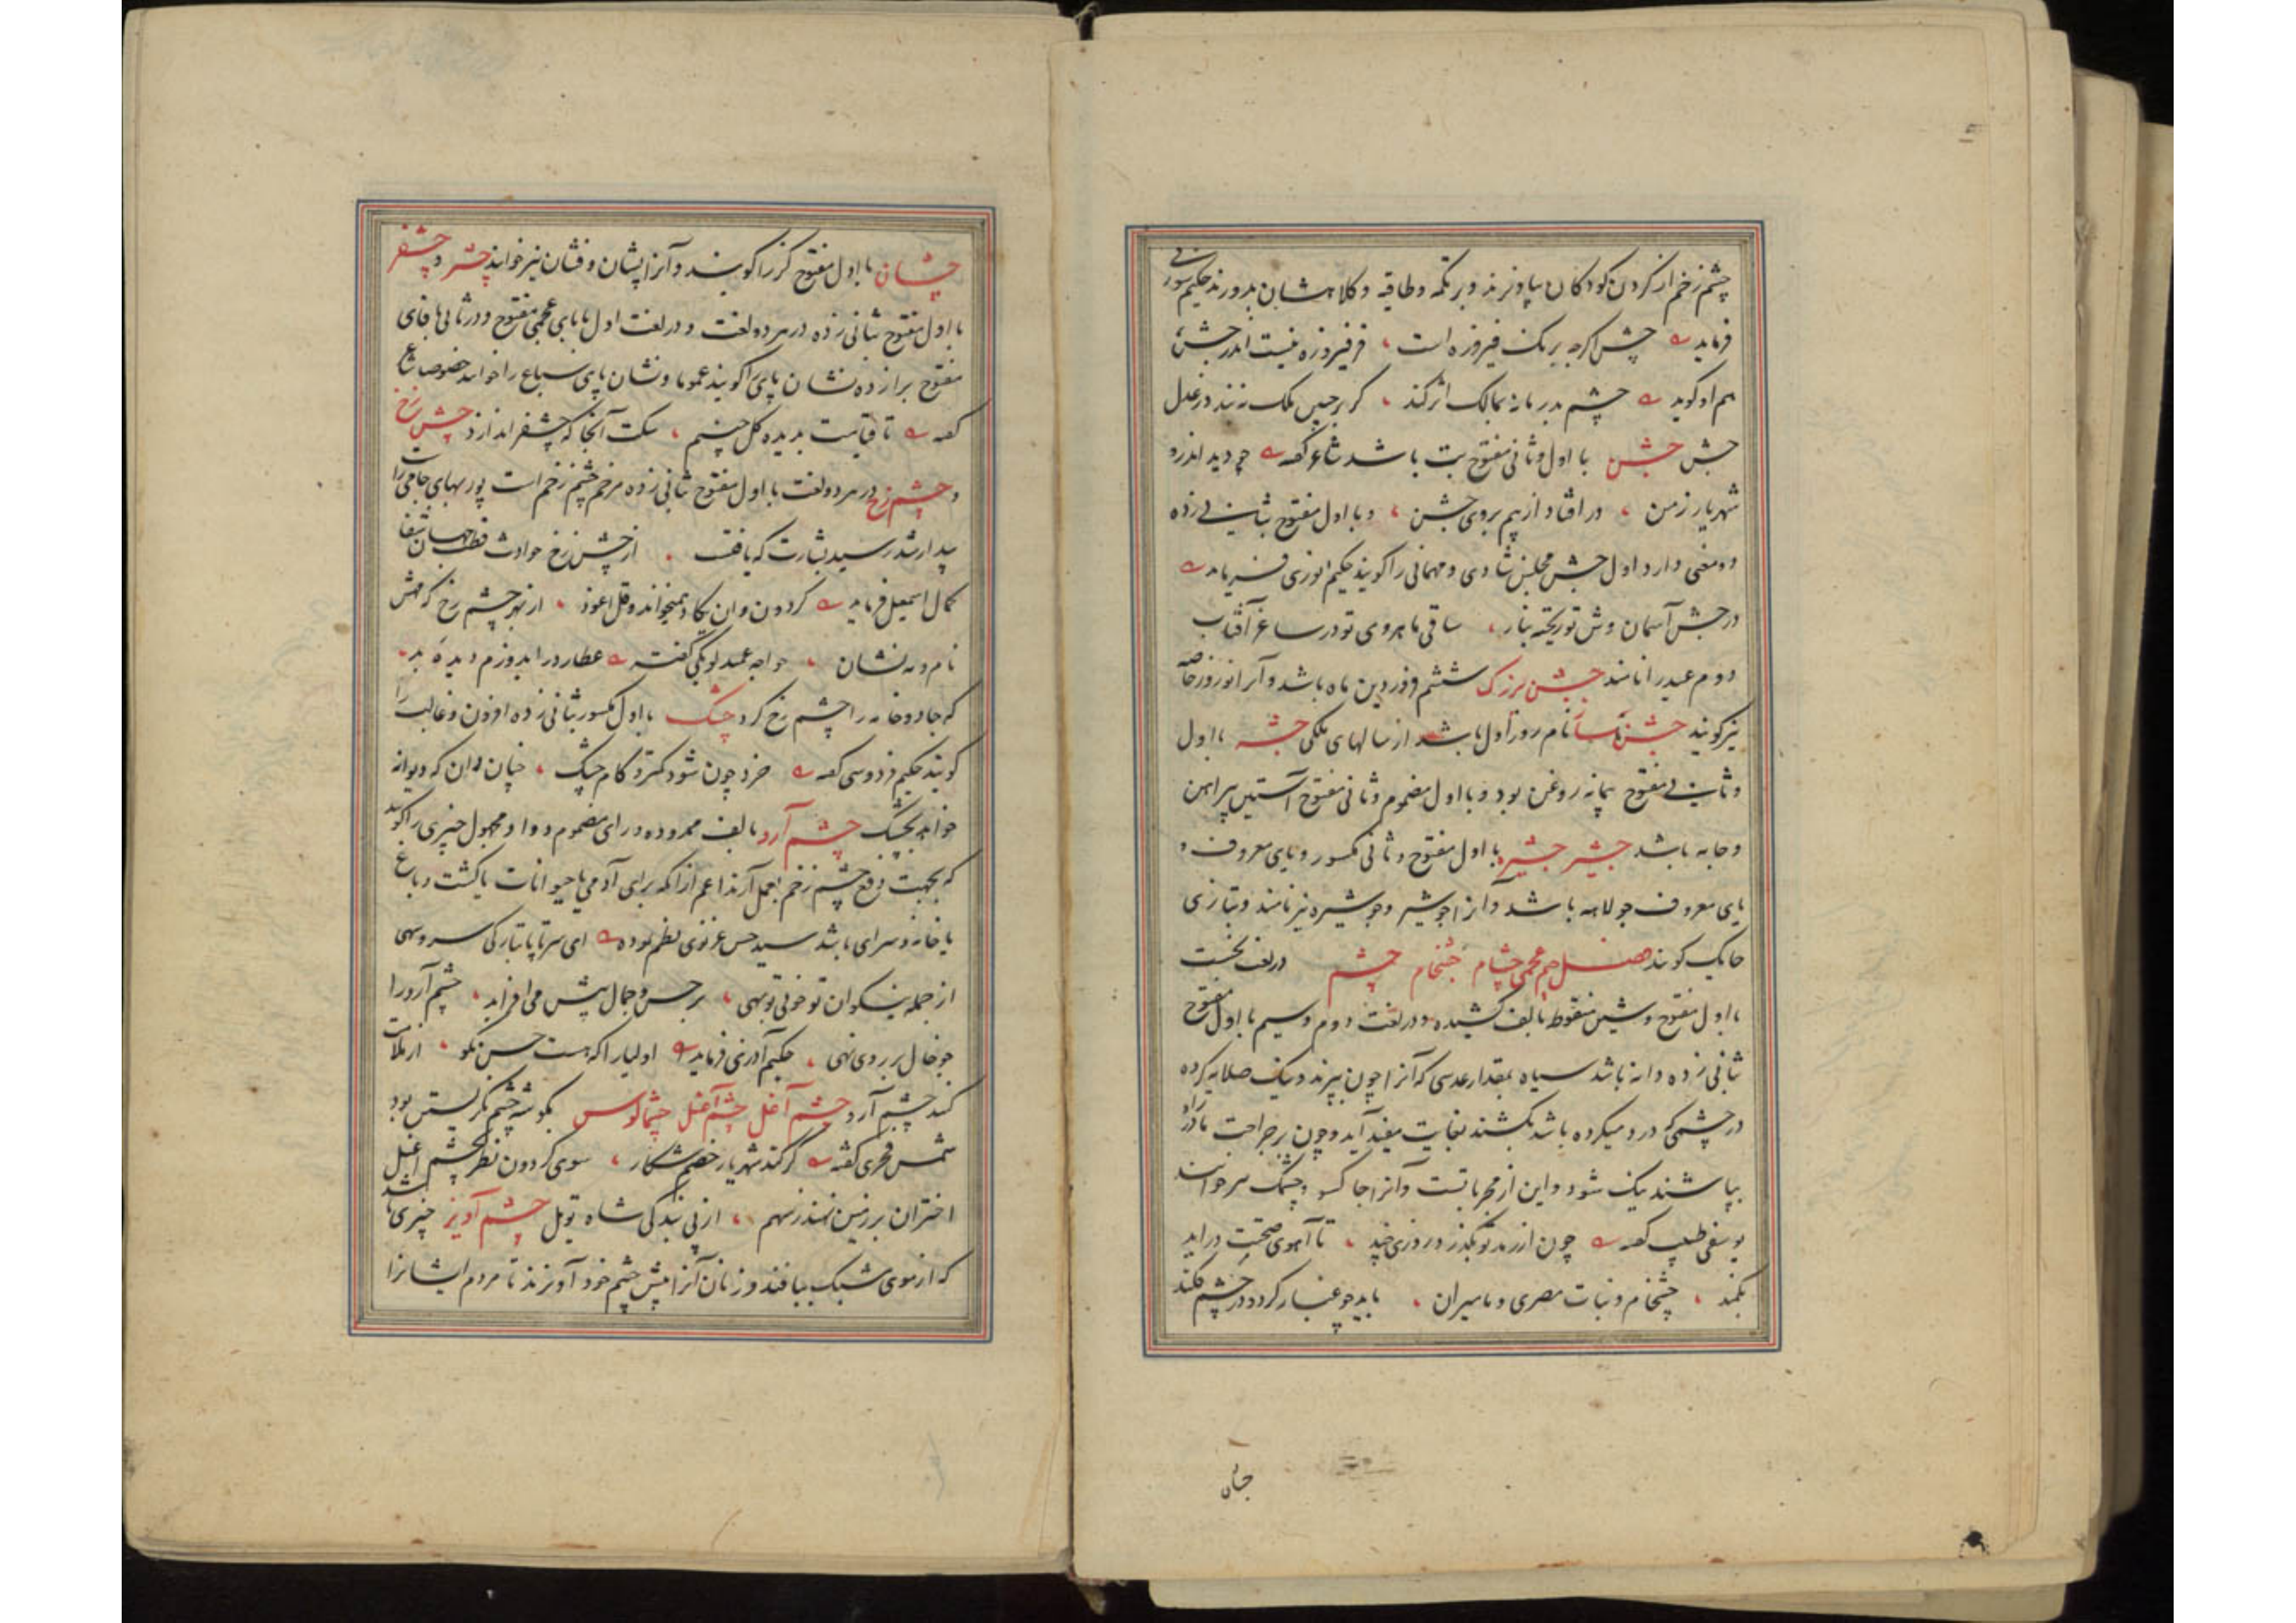 چشم زخم از گردن کودکان بیاویزند و بر تکمه و طاقیه و کلاهشان بدوزند حکیم سوزنی
فرماید چشن اگرچه برنگ فیروزه است فر فیروزه نیست اندر جشن
هم او گوید چشم بد ممالک اثر کند گر بر جبین ملک
جش جشن با اول و ثانی مفتوح بت باشد شاعر گفته چو دید اندرو
شهریار زمن در افتاد از بیم بروی جشن و با اول مفتوح بثانی زده
دو معنی دارد اول جشن مجلس شادی و مهمانی را گویند حکیم انوری فرماید
در جشن آسمان وش تو ریخته بناز ساقی ماهروی تو در ساغر آفتاب
دوم عید را نامند جشن بزرگ ششم فروردین ماه باشد و آنرا نوروز خاصه
نیز گویند جشن نام روز اول باشد از سالهای ملکی جشه با اول
و ثانی مفتوح پیمانه روغن بود و با اول مضموم و ثانی مفتوح آستین پیراهن
و جامه باشد جشیر جشیره با اول مفتوح و ثانی مکسور و یای معروف و
یای معروف جولاهه باشد و آنرا جوشیر و جوشیره نیز نامند و بتازی
حایک گویند فصل جیم عجمی چشام چشخام چشم در لغت نخست
با اول مفتوح و شین منقوط بالف کشیده و در لغت دوم و سیم با اول مفتوح
بثانی زده دانه باشد سیاه بمقدار عدسی که آنرا چون بپزند و نیک صلایه کرده
در چشمی که درد میکرده باشد بکشند بغایت مفید آید و چون بر جراحت
بپاشند نیک شود و این از مجربات است و آنرا چاکسو و چشمک نیز خوانند
یوسفی طبیب گفته چون از رمد تو بگذرد روزی چند تا آهوی صحت در آید
بکمند چشخام و نبات مصری و مامیران باید چو غبار کرد و در چشم فکند
چشان با اول مفتوح گز را گویند و آنرا پشان و فشان نیز خوانند چشپر و چشفر
با اول مفتوح بثانی زده در هر دو لغت و در لغت اول با بای عجمی مفتوح و در ثانی با فای
مفتوح برا زده نشان پای را گویند عموما و نشان پای سباع را خوانند خصوصا شاعر
گفته تا قیامت بدیده گل چینم سکت آنجا که چشفر اندازد چش زخ
و چشم زخ در هر دو لغت با اول مفتوح بثانی زده مرخم چشم زخم است پوربهای جامی راست
بیدار شد رسید بشارت که یافت از چش زخ حوادث قطب جهان شفا
کمال اسمعیل فرماید گردون وان یکاد همیخواند و قل اعوذ از بهر چشم زخ که مهش
نام و مه نشان خواجه عمید لوبکی گفته عطار در آید وزم دیده بد
که جادو خانه را چشم زخ کرد چشک با اول مکسور بثانی زده افزون و غالب را
گویند حکیم فردوسی گفته خرد چون شود کمتر و کام چشک چنان دان که دیوانه
خواند بجشک چشم آرد بالف ممدوده و رای مضموم و واو مجهول چیزی را گویند
که بجهت دفع چشم زخم بعمل آرند اعم از آنکه برای آدمی یا حیوانات یا کشت و باغ
یا خانه و سرای باشد سید حسن غزنوی نظم نموده ای سرتاپا تبارک سرو سهی
از جمله نیکوان تو خوبی تو بهی بر حسن و جمال بیش می افزاید چشم آرو را
چو خال بر روی نهی حکیم آذری فرماید اولیا را که هست حسن نکو از بلیات
کند چشم آرو چشم آغل چشم آغیل چشماغوس بگوشه چشم نگریستن بود
شمس فخری گفته گر کند شهریار خصم شکار سوی گردون نظر بچشم اغیل
اختران بر زمین نهند ز سهم از پی بندگی شاه چشم آویز چیزی باشد
که از موی شبک ببافند و زنان آنرا پیش چشم خود آویزند تا مردم ایشانرا